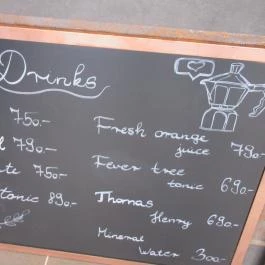 Drinks
750.-
790.-
750.-
tonic 890.-
Fresh orange
juice 790.-
Fever tree
tonic 690.-
Thomas
Henry 690.-
Mineral
Water 300.-